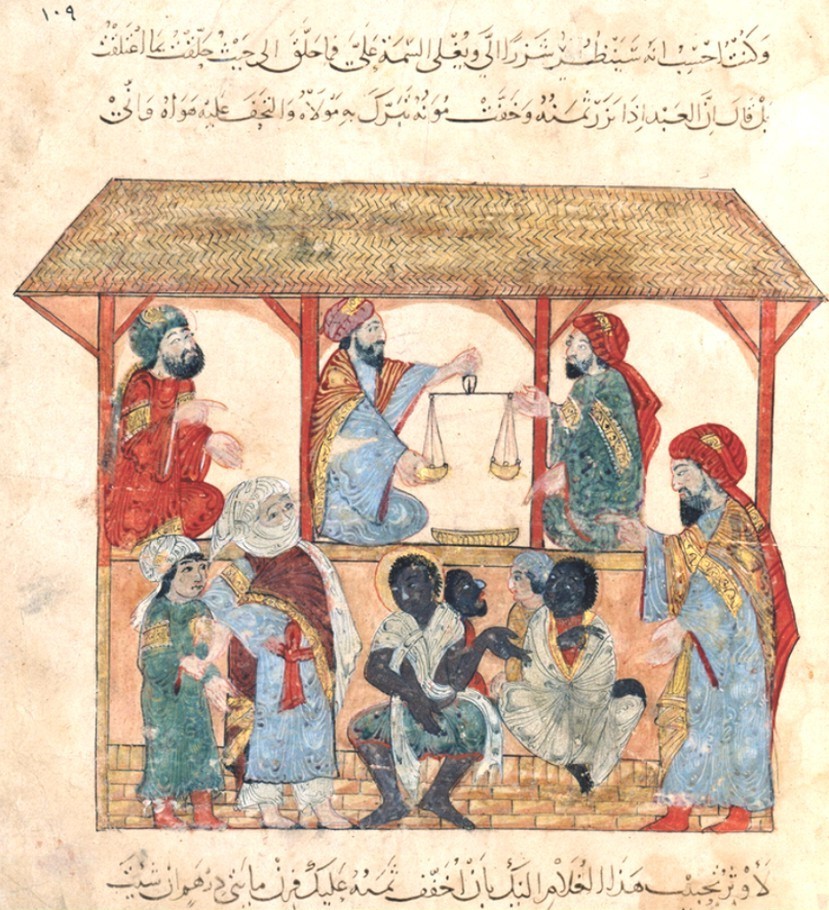 ١٠٩
وكنت احسب انه سينظر شزرا الي ويغلي السيمة علي فما حلق الى حيث حلقت ولا اعتلق بما اعتلقت
بل قال ان العبد اذا نزر ثمنه وخفت مونه تبرك به مولاه والتحف عليه هواه واني
لاوثر تحبيب هذا الغلام اليك بان اخفف ثمنه عليك فزن مايتي درهم ان شيت